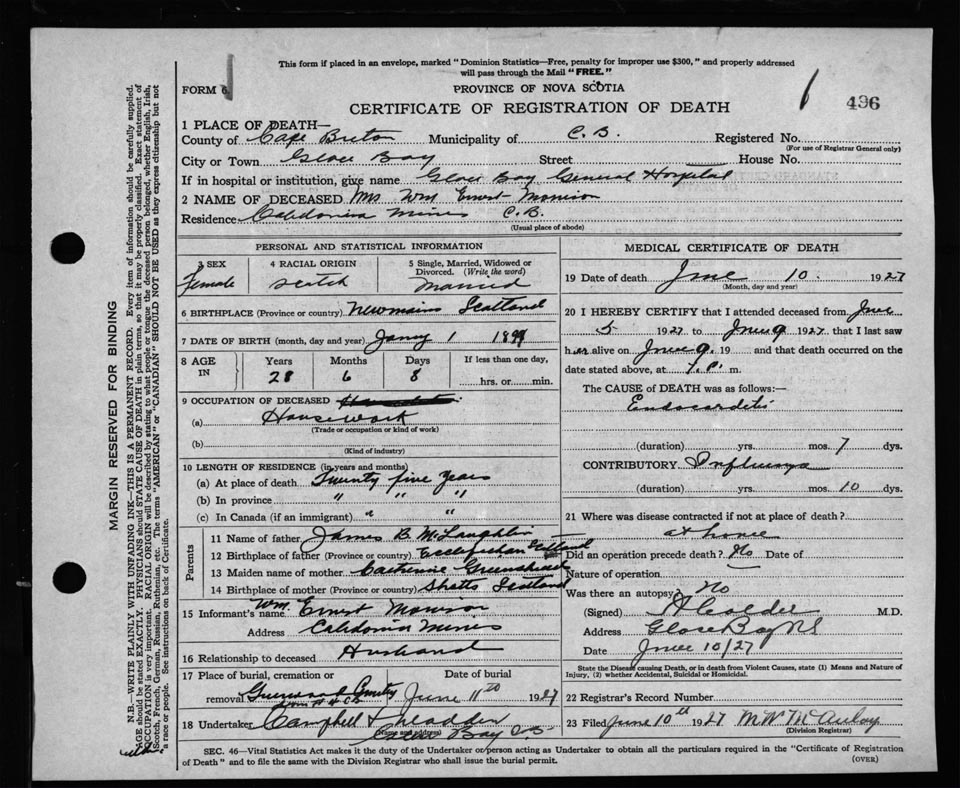 This form if placed in an envelope, marked "Dominion Statistics—Free, penalty for improper use $300," and properly addressed
will pass through the Mail "FREE."
FORM 6.
PROVINCE OF NOVA SCOTIA
CERTIFICATE OF REGISTRATION OF DEATH
496
1 PLACE OF DEATH—
County of Cape Breton Municipality of C. B. Registered No.
(For use of Registrar General only)
City or Town Glace Bay Street House No.
If in hospital or institution, give name Glace Bay General Hospital
2 NAME OF DECEASED Mrs Wm Ernest Morrison
Residence Caledonia Mines C.B.
(Usual place of abode)
PERSONAL AND STATISTICAL INFORMATION
3 SEX 4 RACIAL ORIGIN 5 Single, Married, Widowed or Divorced. (Write the word)
Female Scotch Married
6 BIRTHPLACE (Province or country) Newmains Scotland
7 DATE OF BIRTH (month, day and year) Jany 1 1899
8 AGE IN Years Months Days If less than one day,
28 6 8 hrs. or min.
9 OCCUPATION OF DECEASED
(a) Housework
(Trade or occupation or kind of work)
(b)
(Kind of industry)
10 LENGTH OF RESIDENCE (in years and months)
(a) At place of death Twenty five years
(b) In province " " "
(c) In Canada (if an immigrant) " "
Parents
11 Name of father James B. McLaughlin
12 Birthplace of father (Province or country) Ecclefechan Scotland
13 Maiden name of mother Catherine Greenshields
14 Birthplace of mother (Province or country) Shotts Scotland
15 Informant's name Wm. Ernest Morrison
Address Caledonia Mines
16 Relationship to deceased Husband
17 Place of burial, cremation or removal Date of burial
Greenwood June 11th 1927
18 Undertaker Campbell &
(Name and address) Glace Bay
MEDICAL CERTIFICATE OF DEATH
19 Date of death June 10. 1927
(Month, day and year)
20 I HEREBY CERTIFY that I attended deceased from June
5 1927 to June 9 1927 that I last saw
her alive on June 9. 19 and that death occurred on the
date stated above, at m.
The CAUSE of DEATH was as follows:
Endocarditis
(duration) yrs. mos. 7 dys.
CONTRIBUTORY Influenza
(duration) yrs. mos. 10 dys.
21 Where was disease contracted if not at place of death?
at home
Did an operation precede death? No Date of
Nature of operation
Was there an autopsy? No
(Signed) M.D.
Address Glace Bay NS
Date June 10/27
State the Disease causing Death, or in death from Violent Causes, state (1) Means and Nature of
Injury, (2) whether Accidental, Suicidal or Homicidal.
22 Registrar's Record Number
23 Filed June 10th 1927 M. W. McAulay
(Division Registrar)
SEC. 46—Vital Statistics Act makes it the duty of the Undertaker or person acting as Undertaker to obtain all the particulars required in the "Certificate of Registration
of Death" and to file the same with the Division Registrar who shall issue the burial permit.
(OVER)
MARGIN RESERVED FOR BINDING
N.B.—WRITE PLAINLY WITH UNFADING INK—THIS IS A PERMANENT RECORD. Every item of information should be carefully supplied.
AGE should be stated EXACTLY. PHYSICIANS should STATE CAUSE OF DEATH in plain terms, so that it may be properly classified. Exact statement of
OCCUPATION is very important. RACIAL ORIGIN will be described by stating to what people or tongue the deceased person belonged, whether English, Irish,
Scotch, French, German, Russian, Ruthenian, etc. The terms "AMERICAN" or "CANADIAN" SHOULD NOT BE USED as they express citizenship but not
a race or people. See instructions on back of Certificate.